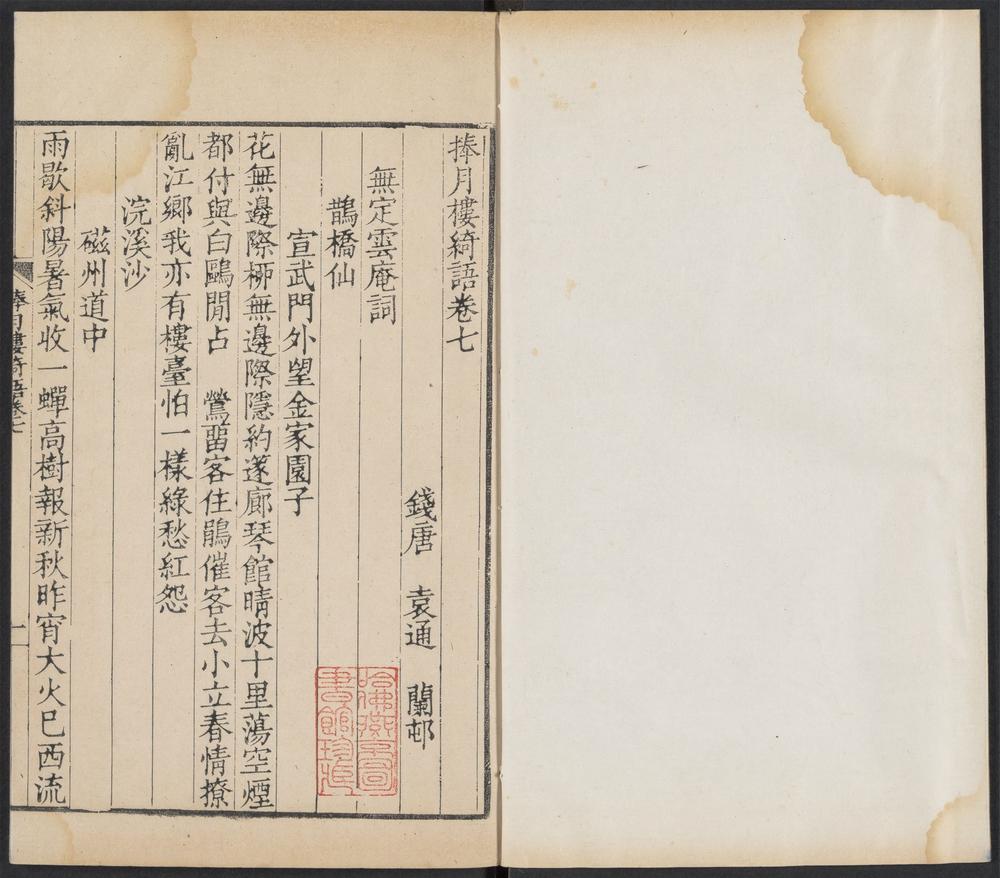 捧月樓綺語卷七
錢唐 袁通 蘭邨
無定雲庵詞
鵲橋仙
宣武門外望金家園子
花無邊際桺無邊際隱約邃廊琴館晴波十里蕩空煙
都付與白鷗閒占 鶯畱客住鵑催客去小立春情撩
亂江鄉我亦有樓臺怕一樣綠愁紅怨
浣溪沙
磁州道中
雨歇斜陽暑氣收一蟬高樹報新秋昨宵大火巳西流
捧月樓綺語卷七
一
哈佛燕京圖
書館珍藏